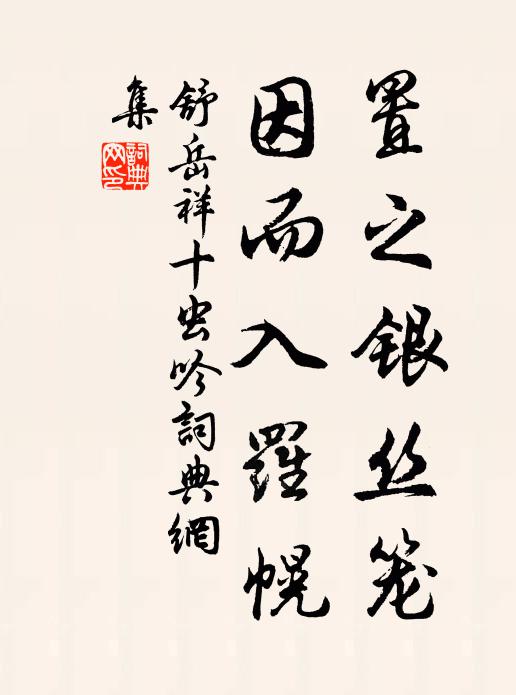 置之银丝笼
因而入羅幌
舒岳祥十虫吟詞典網
集
詞典网印